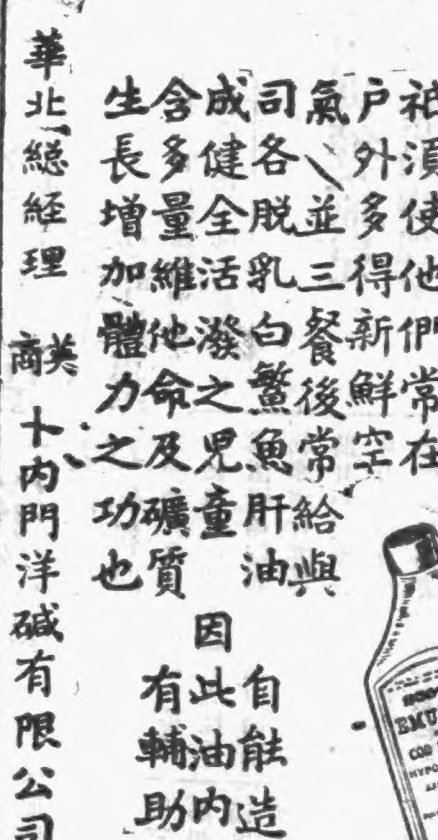 祗須使他們常在
戶外多得新鮮空
氣、並三餐後常給與
司各脱乳白鰵魚肝油 自能造
成健全活潑之児童 因此油内
含多量維他命及礦質 有輔助
生長增加體力之功也
華北総経理 英商 卜内門洋碱有限公司
EMU
COD
HYPO